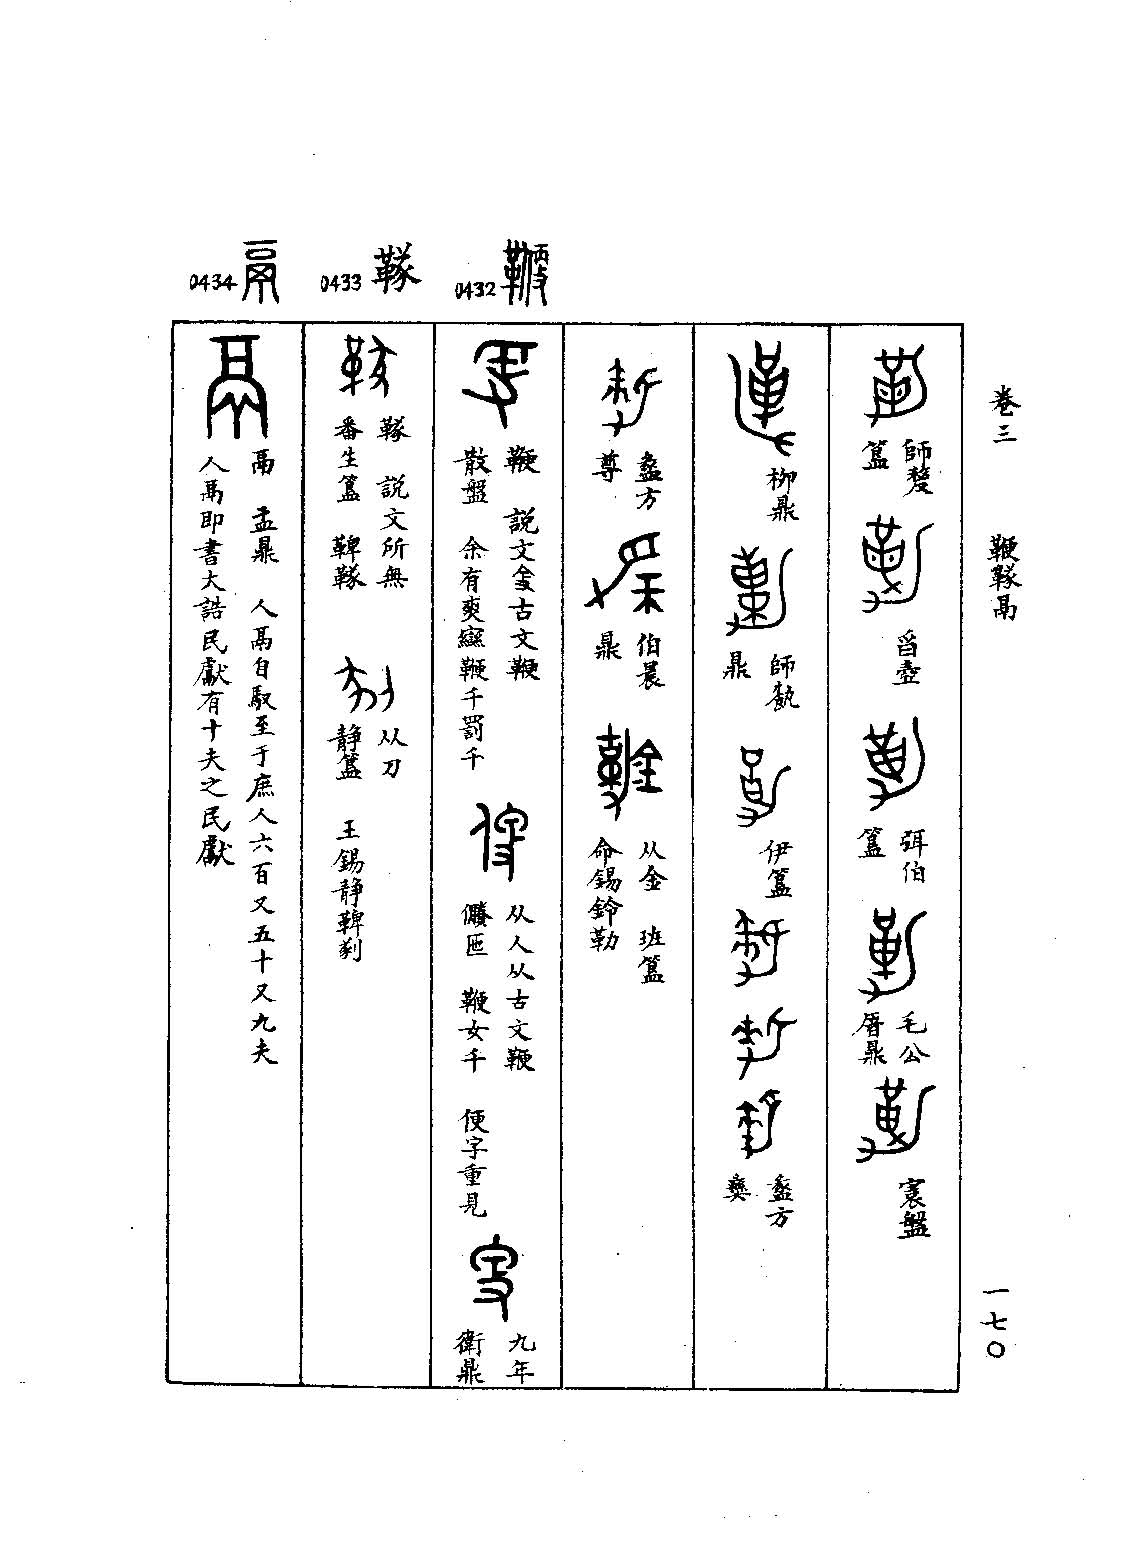 卷三
鞭䩱鬲
一七〇
0432 鞭
0433 䩱
0434 鬲
師𠭰
簋
舀壺
弭伯
簋
毛公
㫚鼎
寰盤
柳鼎
師𩛥
鼎
伊簋
盠方
彝
盠方
尊
伯晨
鼎
从金 班簋
命錫鈴勒
鞭 説文𠓥古文鞭
散盤 余有爽𤔲鞭千罰千
从人从古文鞭
儵匜 鞭女千 便字重見
九年
衛鼎
䩱 説文所無
番生簋 鞞䩱
从刀
静簋 王錫静鞞剢
鬲 盂鼎 人鬲自馭至于庶人六百又五十又九夫
人鬲即書大誥民獻有十夫之民獻